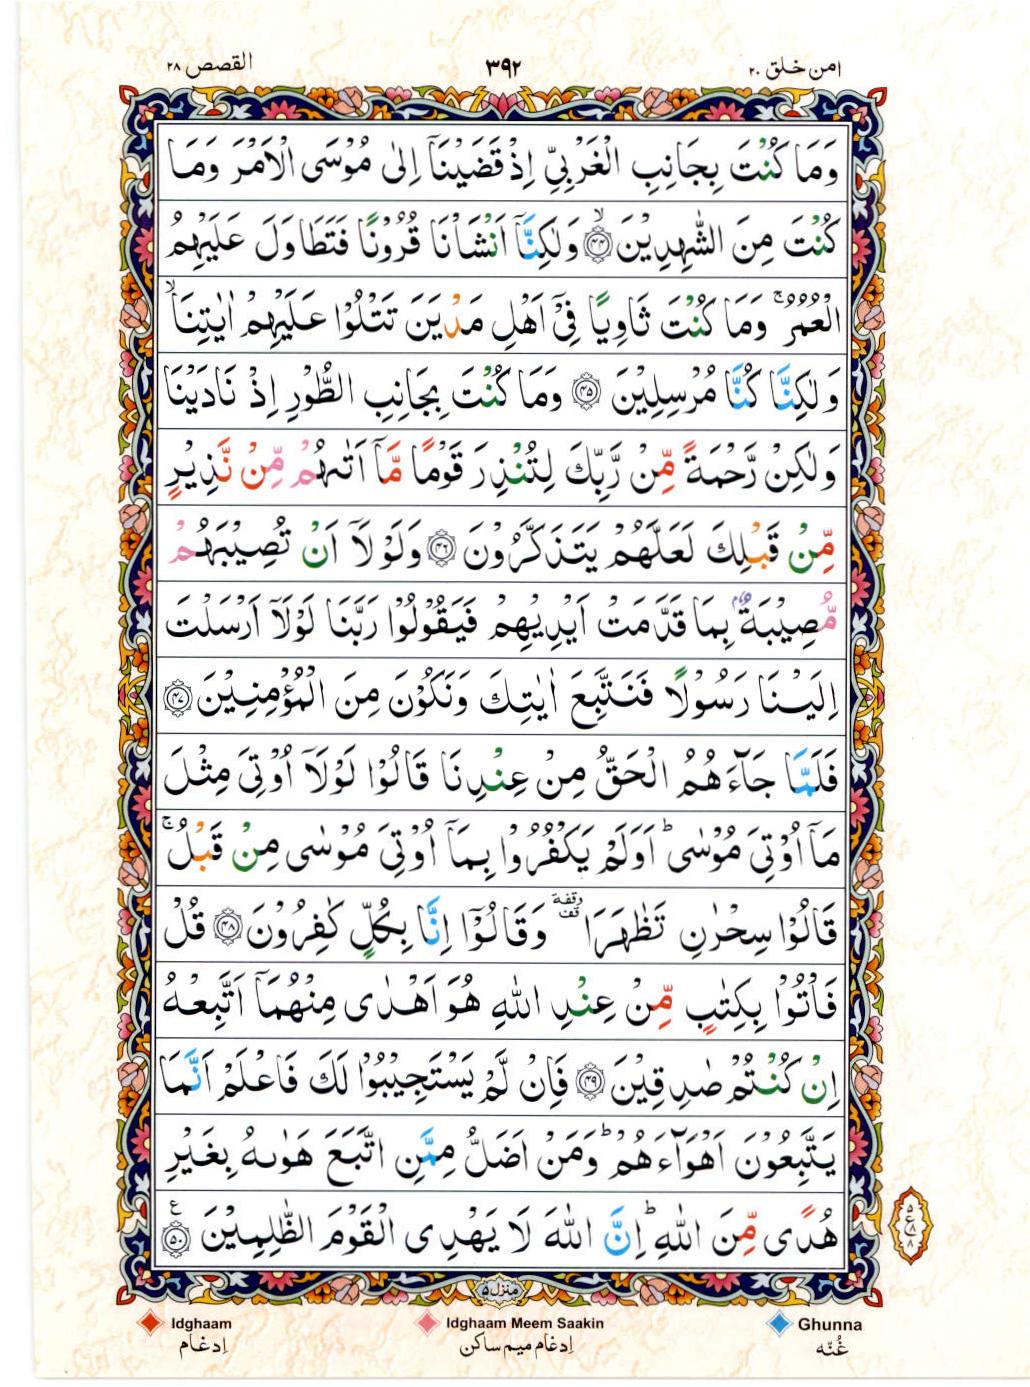 القصص ٢٨
٣٩٢
امن خلق ٢٠
وَمَا كُنْتَ بِجَانِبِ الْغَرْبِيِّ اِذْ قَضَيْنَاۤ اِلٰى مُوْسَى الْاَمْرَ وَمَا
كُنْتَ مِنَ الشّٰهِدِيْنَ ۙ‏﴿۴۴﴾ وَلٰكِنَّاۤ اَنْشَاْنَا قُرُوْنًا فَتَطَاوَلَ عَلَيْهِمُ
الْعُمُرُ ۚ وَمَا كُنْتَ ثَاوِيًا فِىْۤ اَهْلِ مَدْيَنَ تَتْلُوْا عَلَيْهِمْ اٰيٰتِنَا ۙ
وَلٰكِنَّا كُنَّا مُرْسِلِيْنَ ﴿۴۵﴾ وَمَا كُنْتَ بِجَانِبِ الطُّوْرِ اِذْ نَادَيْنَا
وَلٰكِنْ رَّحْمَةً مِّنْ رَّبِّكَ لِتُنْذِرَ قَوْمًا مَّاۤ اَتٰٮهُمْ مِّنْ نَّذِيْرٍ
مِّنْ قَبْلِكَ لَعَلَّهُمْ يَتَذَكَّرُوْنَ ﴿۴۶﴾ وَلَوْلَاۤ اَنْ تُصِيْبَهُمْ
مُّصِيْبَةٌۢ بِمَا قَدَّمَتْ اَيْدِيْهِمْ فَيَقُوْلُوْا رَبَّنَا لَوْلَاۤ اَرْسَلْتَ
اِلَيْنَا رَسُوْلًا فَنَتَّبِعَ اٰيٰتِكَ وَنَكُوْنَ مِنَ الْمُؤْمِنِيْنَ ﴿۴۷﴾
فَلَمَّا جَآءَهُمُ الْحَقُّ مِنْ عِنْدِنَا قَالُوْا لَوْلَاۤ اُوْتِىَ مِثْلَ
مَاۤ اُوْتِىَ مُوْسٰى ؕ اَوَلَمْ يَكْفُرُوْا بِمَاۤ اُوْتِىَ مُوْسٰى مِنْ قَبْلُ ۚ
قَالُوْا سِحْرٰنِ تَظٰهَرَا وقفة قف وَقَالُوْۤا اِنَّا بِكُلٍّ كٰفِرُوْنَ ﴿۴۸﴾ قُلْ
فَاْتُوْا بِكِتٰبٍ مِّنْ عِنْدِ اللّٰهِ هُوَ اَهْدٰى مِنْهُمَاۤ اَتَّبِعْهُ
اِنْ كُنْتُمْ صٰدِقِيْنَ ﴿۴۹﴾ فَاِنْ لَّمْ يَسْتَجِيْبُوْا لَكَ فَاعْلَمْ اَنَّمَا
يَتَّبِعُوْنَ اَهْوَآءَهُمْ ؕ وَمَنْ اَضَلُّ مِمَّنِ اتَّبَعَ هَوٰٮهُ بِغَيْرِ
هُدًى مِّنَ اللّٰهِ ؕ اِنَّ اللّٰهَ لَا يَهْدِى الْقَوْمَ الظّٰلِمِيْنَ ﴿۵۰﴾ ع
۵ ع ۸ ۸
منزل ۵
Idghaam
Idghaam Meem Saakin
Ghunna
اِدغام
اِدغام میم ساکن
غُنّه